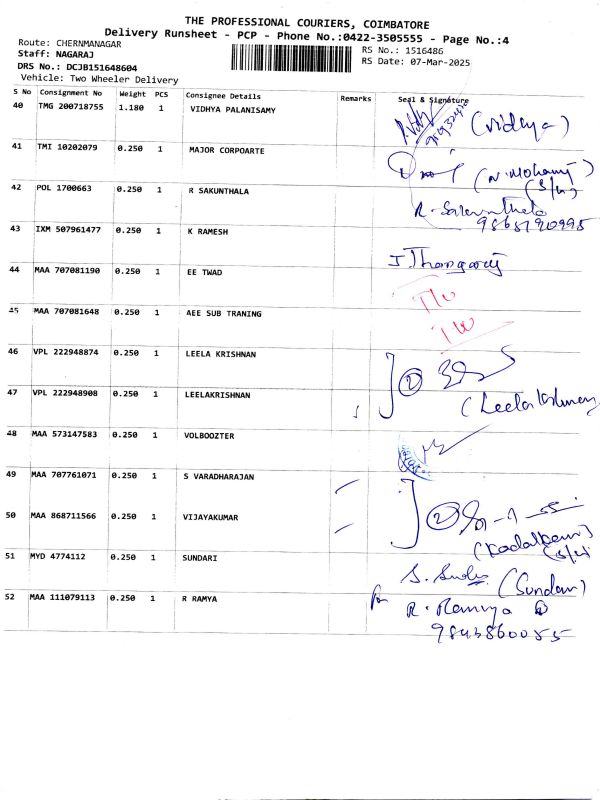 THE PROFESSIONAL COURIERS, COIMBATORE
Delivery Runsheet - PCP - Phone No.:0422-3505555 - Page No.:4
Route: CHERNMANAGAR
Staff: NAGARAJ
RS No.: 1516486
DRS No.: DCJB151648604
RS Date: 07-Mar-2025
Vehicle: Two Wheeler Delivery
S No Consignment No Weight PCS Consignee Details Remarks Seal & Signature
40 TMG 200718755 1.180 1 VIDHYA PALANISAMY (Vidhya)
41 TMI 10202079 0.250 1 MAJOR CORPOARTE
42 POL 1700663 0.250 1 R SAKUNTHALA
43 IXM 507961477 0.250 1 K RAMESH
44 MAA 707081190 0.250 1 EE TWAD
45 MAA 707081648 0.250 1 AEE SUB TRANING
46 VPL 222948874 0.250 1 LEELA KRISHNAN 2
47 VPL 222948908 0.250 1 LEELAKRISHNAN
48 MAA 573147583 0.250 1 VOLBOOZTER
49 MAA 707761071 0.250 1 S VARADHARAJAN
50 MAA 868711566 0.250 1 VIJAYAKUMAR 2
51 MYD 4774112 0.250 1 SUNDARI
52 MAA 111079113 0.250 1 R RAMYA R. Ramya
9843860055